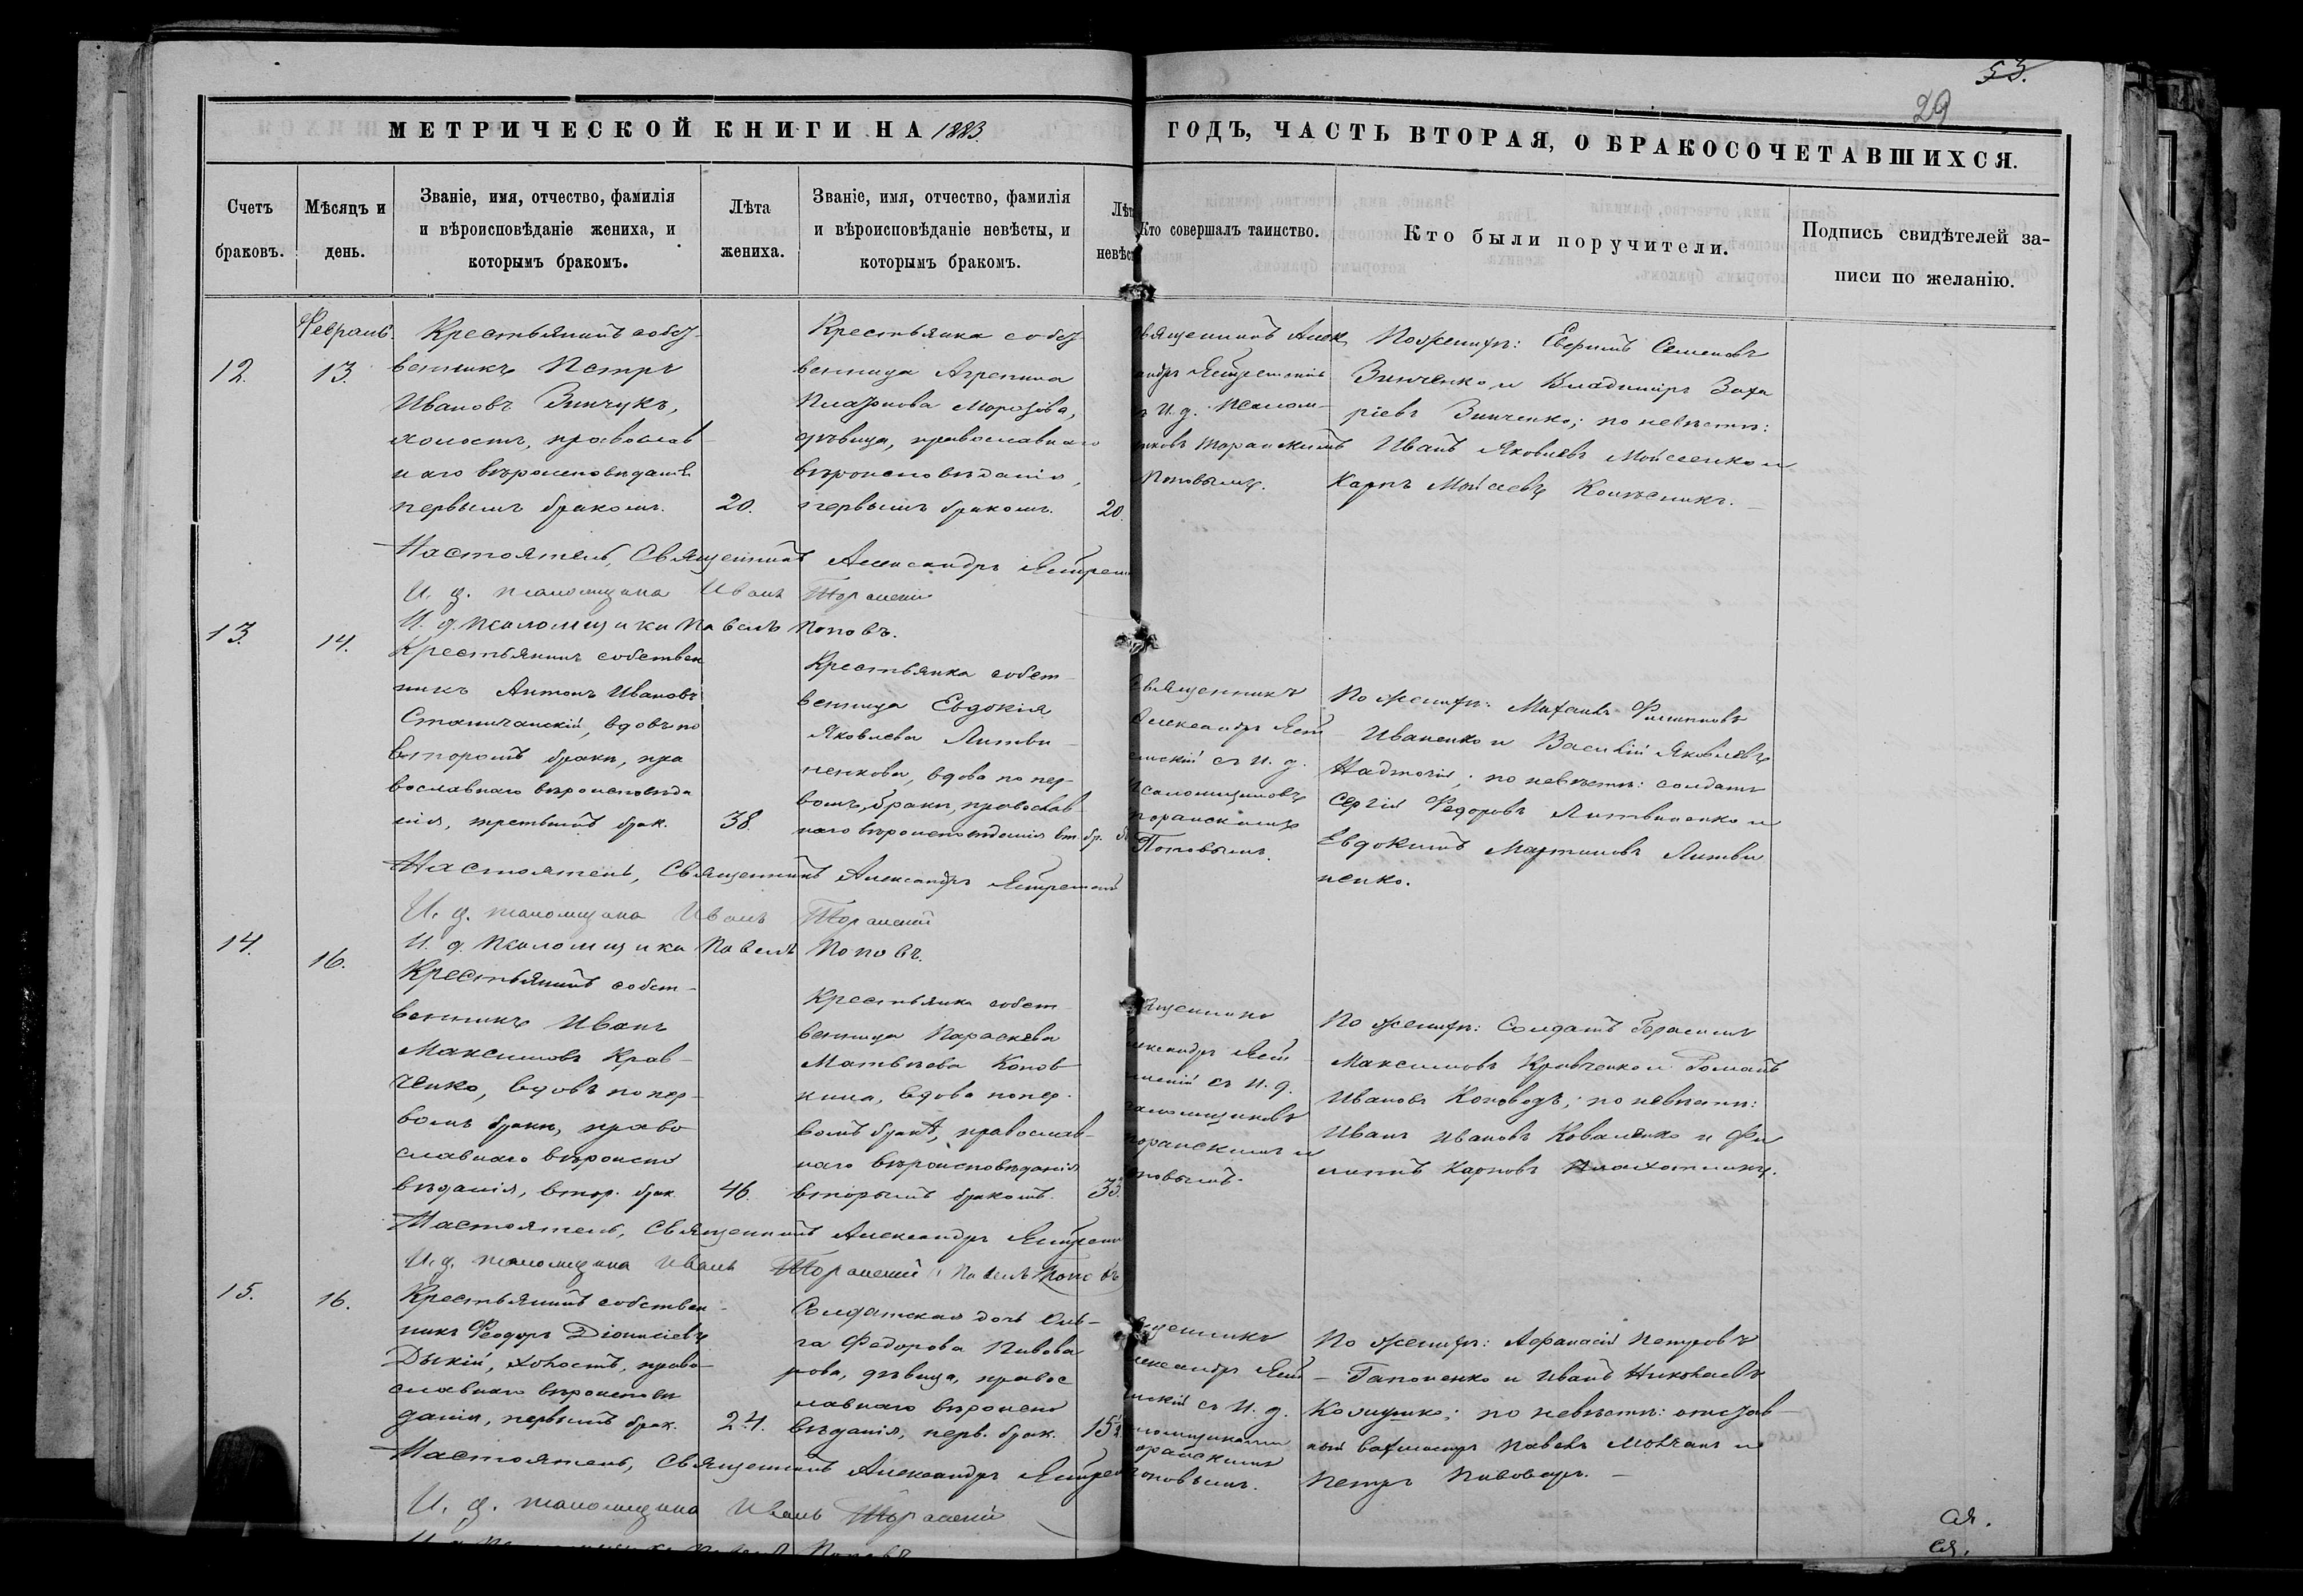 53.
29
МЕТРИЧЕСКОЙ КНИГИ НА 1883
ГОДЪ, ЧАСТЬ ВТОРАЯ, О БРАКОСОЧЕТАВШИХСЯ.
Счетъ браковъ.
Мѣсяцъ и день.
Званіе, имя, отчество, фамилія
и вѣроисповѣданіе жениха, и
которымъ бракомъ.
Лѣта
жениха.
Званіе, имя, отчество, фамилія
и вѣроисповѣданіе невѣсты, и
которымъ бракомъ.
Лѣт
невѣс
Кто совершалъ таинство.
Кто были поручители.
Подпись свидѣтелей за-
писи по желанію.
Февраль.
12.
13.
Крестьянинъ собст
венникъ Петръ
Ивановъ Зинчукъ,
холостъ, православ
наго вѣроисповѣданія
первымъ бракомъ.
20.
Крестьянка собст
венница Агрепина
Платонова Морозова,
дѣвица, православнаго
вѣроисповѣданія,
первымъ бракомъ.
20.
вященникъ Алек
андръ
и. д. псалом-
Поповымъ.
По женихѣ: Ефримъ Семеновъ
Зинченко и Владиміръ Заха
ріевъ Зинченко; по невѣстѣ:
Иванъ Яковлевъ Мойсеенко и
Карпъ Мойсеевъ
Настоятель, Священникъ Александръ
И. д. псаломщика Иванъ
И. д. псаломщика Павелъ Поповъ.
13.
14.
Крестьянинъ собствен
никъ Антонъ Ивановъ
Станичанскій, вдовъ по
второмъ бракѣ, пра
вославнаго вѣроисповѣда
нія, третьимъ брак.
38.
Крестьянка собст
венница Евдокія
Яковлева Литви
ненкова, вдова по пер
вомъ бракѣ, православ
наго вѣроисповѣданія вт. бр.
вященникъ
Александръ
скій съ и. д.
псаломщиковъ
Поповымъ.
По женихѣ: Михаилъ Филиповъ
Иваненко и Василій Яковлевъ
Надточій; по невѣстѣ: солдатъ
Сергій Федоровъ Литвиненко и
Евдокимъ Мартиновъ Литви
ненко.
Настоятель, Священникъ Александръ
И. д. псаломщика Иванъ
И. д. псаломщика Павелъ Поповъ.
14.
16.
Крестьянинъ собст-
венникъ Иванъ
Максимовъ Крав-
ченко, вдовъ по пер-
вомъ бракѣ, право
славнаго вѣроиспо
вѣданія, втор. брак.
46.
Крестьянка собст
венница Параскева
Матвѣева Конов
кина, вдова по пер-
вомъ бракѣ, православ-
наго вѣроисповѣданія
вторымъ бракомъ.
33.
ященникъ
лександръ
съ и. д.
саломщиковъ
повымъ.
По женихѣ: Солдатъ Герасимъ
Максимовъ Кравченко и Романъ
Ивановъ Коноводъ; по невѣстѣ:
Иванъ Ивановъ Коваленко и Фи
липъ Карповъ Плахотникъ.
Настоятель, Священникъ Александръ
И. д. псаломщика Иванъ
Павелъ Поповъ
15.
16.
Крестьянинъ собствен-
никъ Феодоръ Діонисіевъ
Дикій, холостъ, право-
славнаго вѣроисповѣ
данія, первымъ брак.
24.
Солдатская дочь Оль-
га Федорова Пивова
рова, дѣвица, правос
лавнаго вѣроиспо
вѣданія, перв. брак.
15½
щенникъ
лександръ
скій съ и. д.
оповымъ.
По женихѣ: Афанасій Петровъ
Гапоненко и Иванъ Николаевъ
по невѣстѣ: отстав-
ной вахмистръ Павелъ Молчанъ и
Петръ Пивоваръ.
Настоятель, Священникъ Александръ
И. д. псаломщика Иванъ